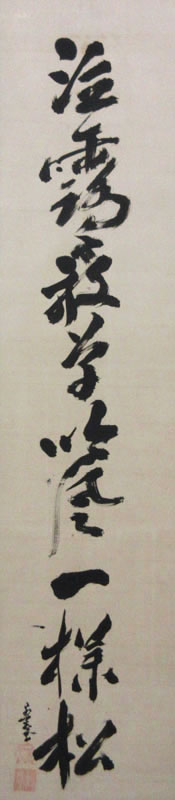 泣露千般草吟風一樣松